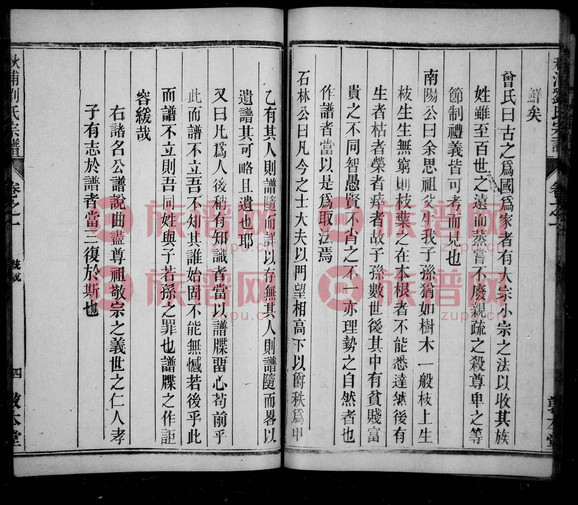 鮮矣
曾氏曰古之爲國爲家者有大宗小宗之法以收其族
姓雖至百世之遠而蒸嘗不廢親疏之殺尊卑之等
節制禮義皆可考而見也
南陽公曰余思祖父生我子孫猶如樹木一般枝上生
枝生生無窮則枝葉之在本根者不能悉達然後有
生者枯者榮者瘁者故子孫數世後其中有貧賤富
貴之不同智愚賢不肖之不一亦理勢之自然者也
作譜者當以是爲取法焉
石林公曰凡今之士大夫以門望相高下以爵秩爲甲
乙有其人則譜隨而詳以存無其人則譜隨而畧以
遺譜其可略且遺也耶
又曰凡爲人後稍有知識者當以譜牒畱心苟前乎
此而譜不立吾不知其誰始固不能無憾若後乎此
而譜不立則吾同姓與子若孫之罪也譜牒之作詎
容緩哉
右諸名公譜說曲盡尊祖敬宗之義世之仁人孝
子有志於譜者當三復於斯也
秋浦劉氏宗譜
卷之一
譜說
四
敦本堂
族谱网
zupu.cn